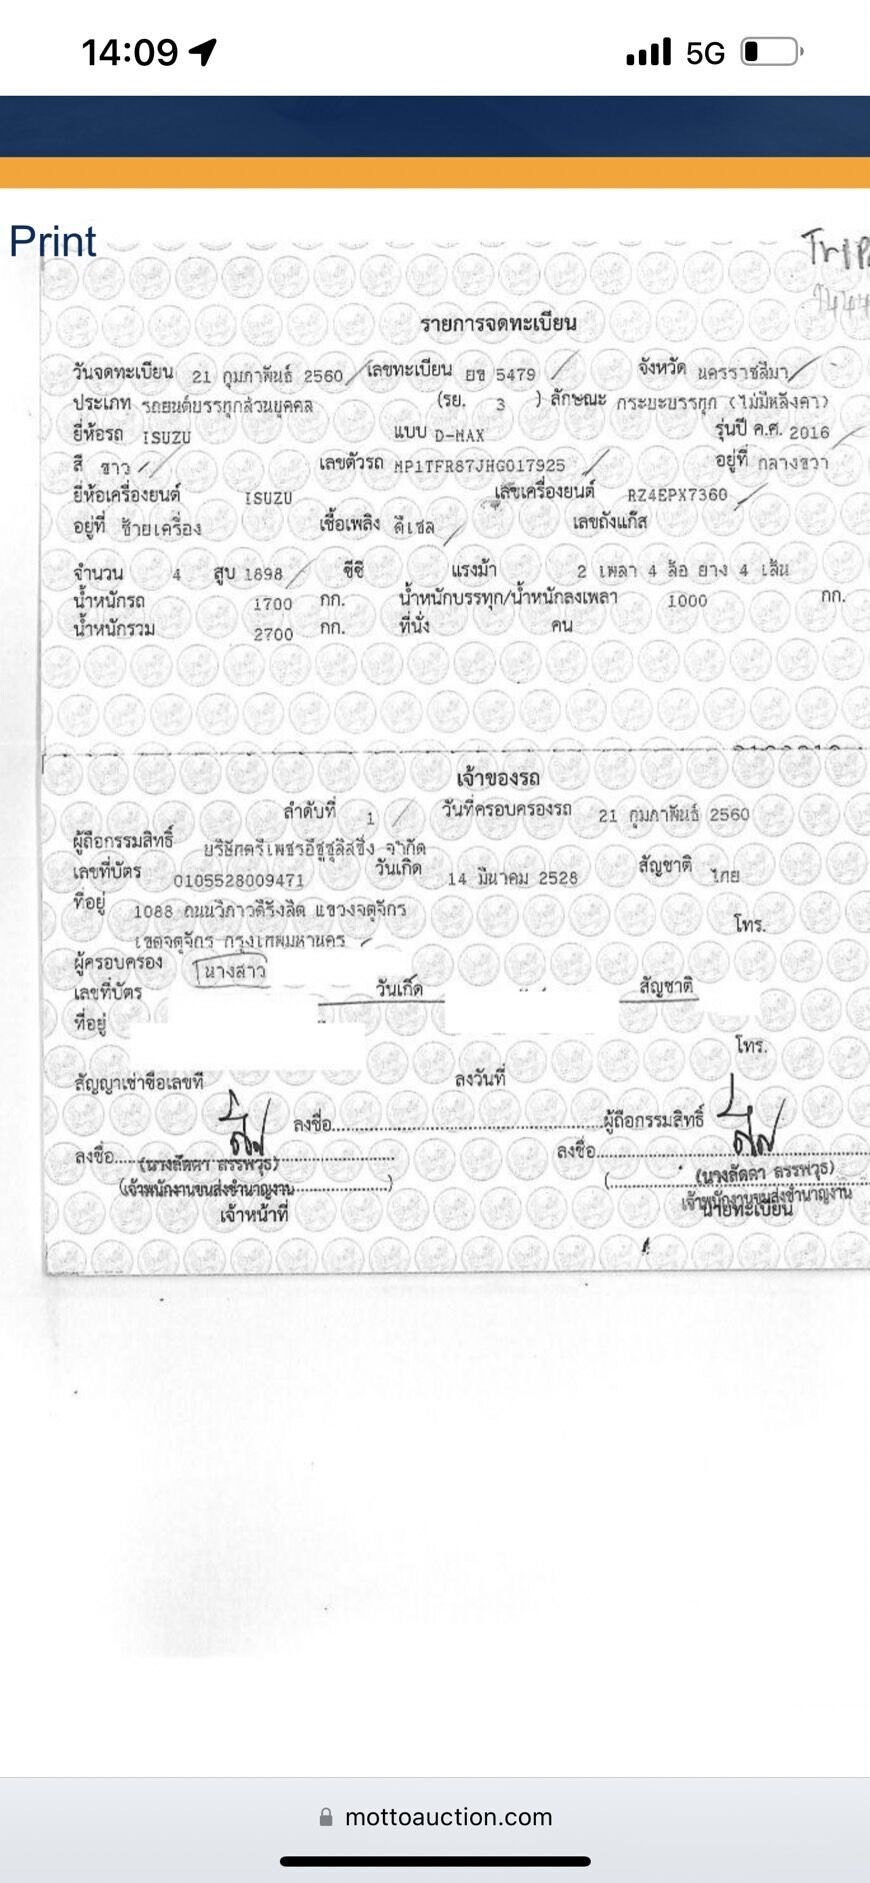 14:09
5G
Print
รายการจดทะเบียน
วันจดทะเบียน 21 กุมภาพันธ์ 2560 เลขทะเบียน ยข 5479 จังหวัด นครราชสีมา
ประเภท รถยนต์บรรทุกส่วนบุคคล (รย. 3 ) ลักษณะ กระบะบรรทุก (ไม่มีหลังคา)
ยี่ห้อรถ ISUZU แบบ D-MAX รุ่นปี ค.ศ. 2016
สี ขาว เลขตัวรถ MP1TFR87JHG017925 อยู่ที่ กลางขวา
ยี่ห้อเครื่องยนต์ ISUZU เลขเครื่องยนต์ RZ4EPX7360
อยู่ที่ ซ้ายเครื่อง เชื้อเพลิง ดีเซล เลขถังแก๊ส
จำนวน 4 สูบ 1898 ซีซี แรงม้า 2 เพลา 4 ล้อ ยาง 4 เส้น
น้ำหนักรถ 1700 กก. น้ำหนักบรรทุก/น้ำหนักลงเพลา 1000 กก.
น้ำหนักรวม 2700 กก. ที่นั่ง คน
เจ้าของรถ
ลำดับที่ 1 วันที่ครอบครองรถ 21 กุมภาพันธ์ 2560
ผู้ถือกรรมสิทธิ์ บริษัทตรีเพชรอีซูซุลิสซิ่ง จำกัด
เลขที่บัตร 0105528009471 วันเกิด 14 มีนาคม 2528 สัญชาติ ไทย
ที่อยู่ 1088 ถนนวิภาวดีรังสิต แขวงจตุจักร โทร.
เขตจตุจักร กรุงเทพมหานคร
ผู้ครอบครอง นางสาว
เลขที่บัตร วันเกิด สัญชาติ
ที่อยู่
โทร.
สัญญาเช่าซื้อเลขที่ ลงวันที่
ลงชื่อ ผู้ถือกรรมสิทธิ์
ลงชื่อ (นางลัดดา สรรพวุธ) ลงชื่อ (นางลัดดา สรรพวุธ)
(เจ้าพนักงานขนส่งชำนาญงาน ) ( เจ้าพนักงานขนส่งชำนาญงาน
เจ้าหน้าที่ นายทะเบียน
mottoauction.com